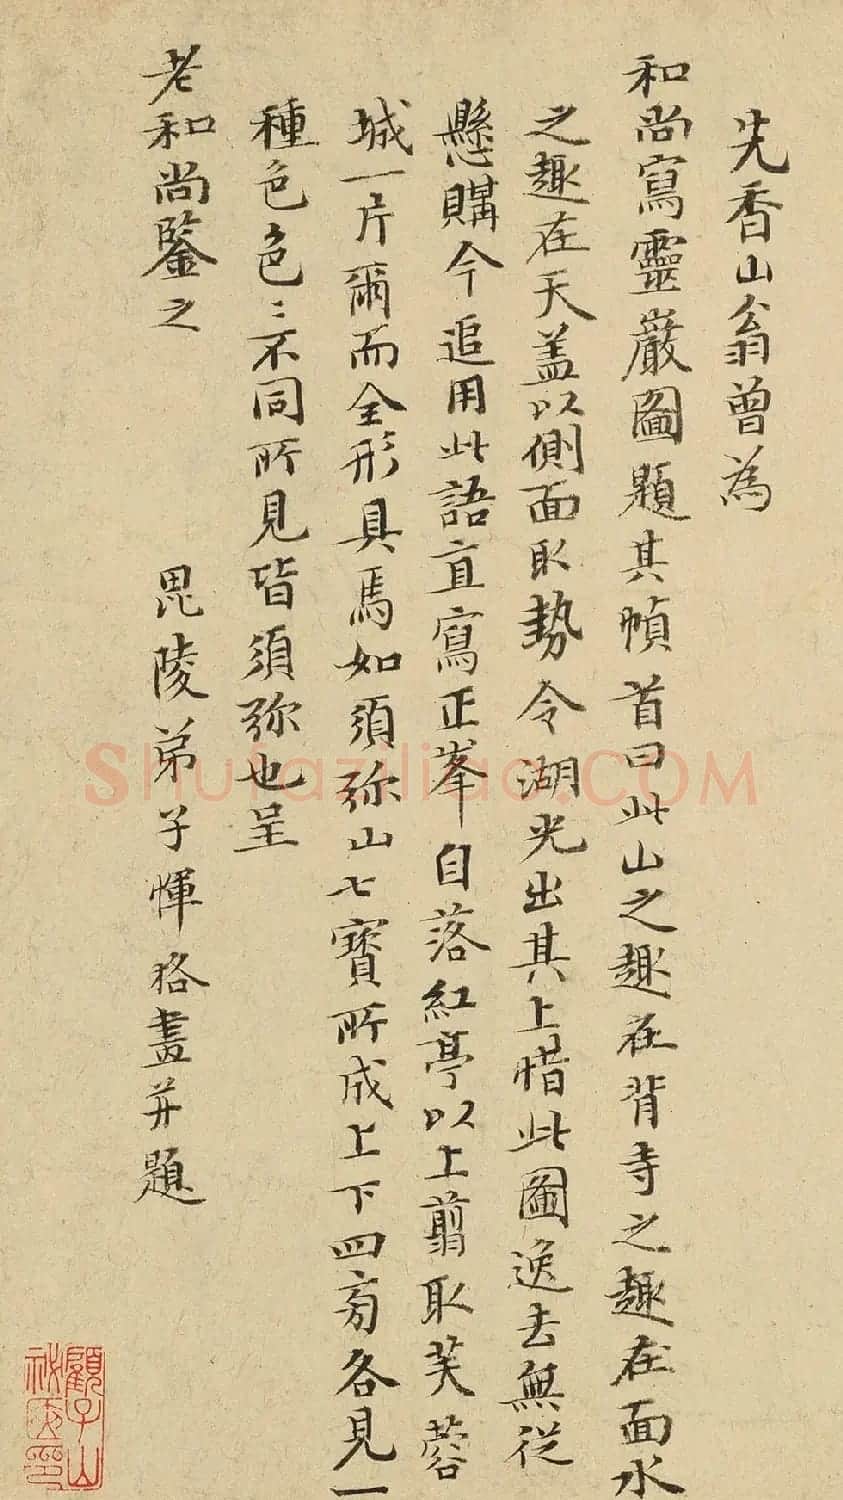 先香山翁曾為
和尚寫靈巖圖題其幀首曰此山之趣在背寺之趣在面水
之趣在天盖以側面取勢令湖光出其上惜此圖逸去無從
懸購今追用此語直寫正峯自落紅亭以上翦取芙蓉
城一片爾而全形具焉如須弥山七寶所成上下四旁各見一
種色色〻不同所見皆須弥也呈
老和尚鑒之
毘陵弟子惲格畫并題
顧子山
祕匧印
Shufaziliao.COM